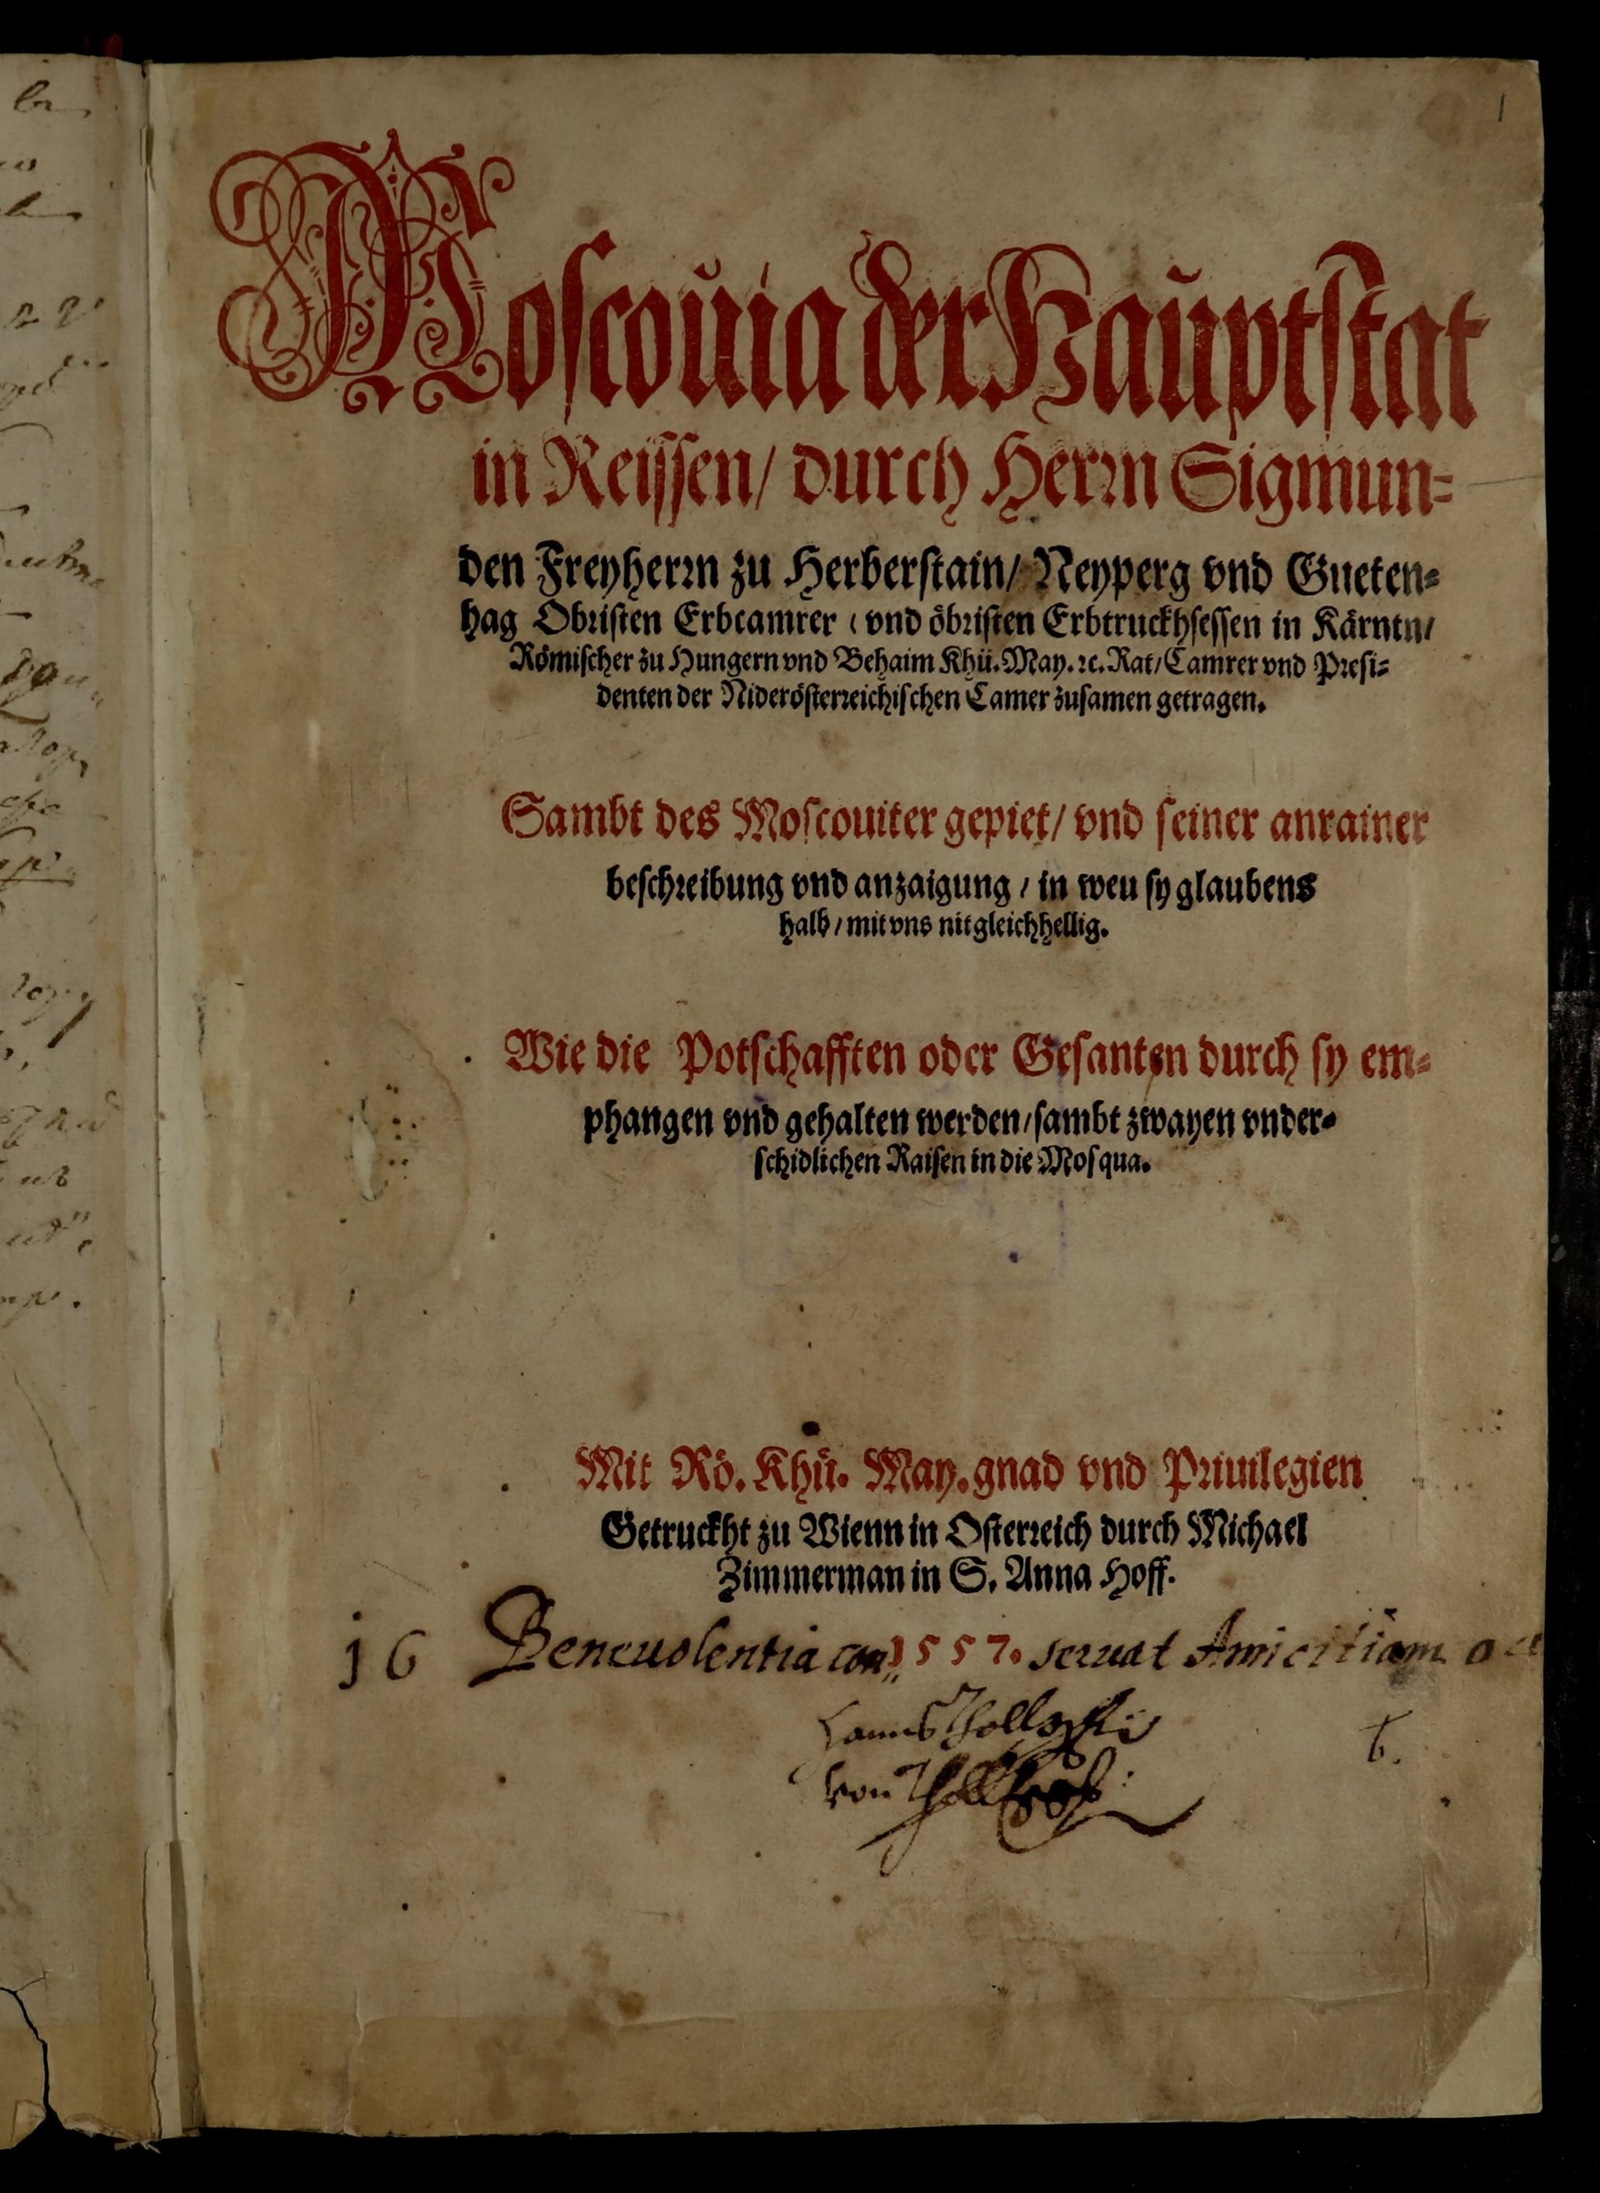 1
Moscouia der Hauptstat
in Reissen/ durch Herrn Sigmun⸗
den Freyherrn zu Herberstain/ Neyperg vnd Gueten⸗
hag Obristen Erbcamrer/ vnd öbristen Erbtruckhsessen in Kärntn/
Römischer zu Hungern vnd Behaim Khü. May. ꝛc. Rat/ Camrer vnd Presi⸗
denten der Niderösterreichischen Camer zusamen getragen.
Sambt des Moscouiter gepiet/ vnd seiner anrainer
beschreibung vnd anzaigung/ in weu sy glaubens
halb/ mit vns nit gleichhellig.
Wie die Potschafften oder Gesanten durch sy em⸗
phangen vnd gehalten werden/ sambt zwayen vnder⸗
schidlichen Raisen in die Mosqua.
Mit Rö. Khü. May. gnad vnd Priuilegien
Getruckht zu Wienn in Osterreich durch Michael
Zimmerman in S. Anna Hoff.
16 Beneuolentia con„ 1557. seruat Amicitiam
von